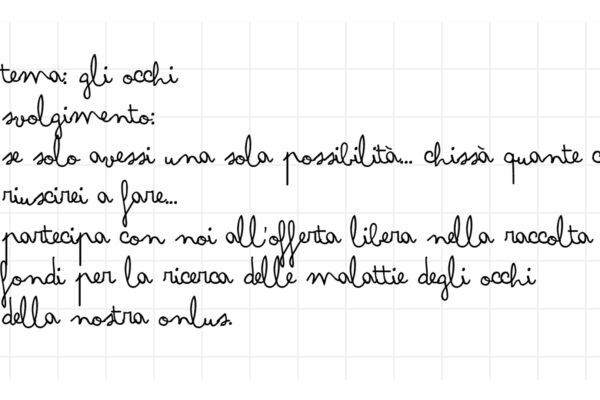 tema: gli occhi
svolgimento:
se solo avessi una sola possibilità... chissà quante
riuscirei a fare...
partecipa con noi all'offerta libera nella raccolta
fondi per la ricerca delle malattie degli occhi
della nostra onlus.